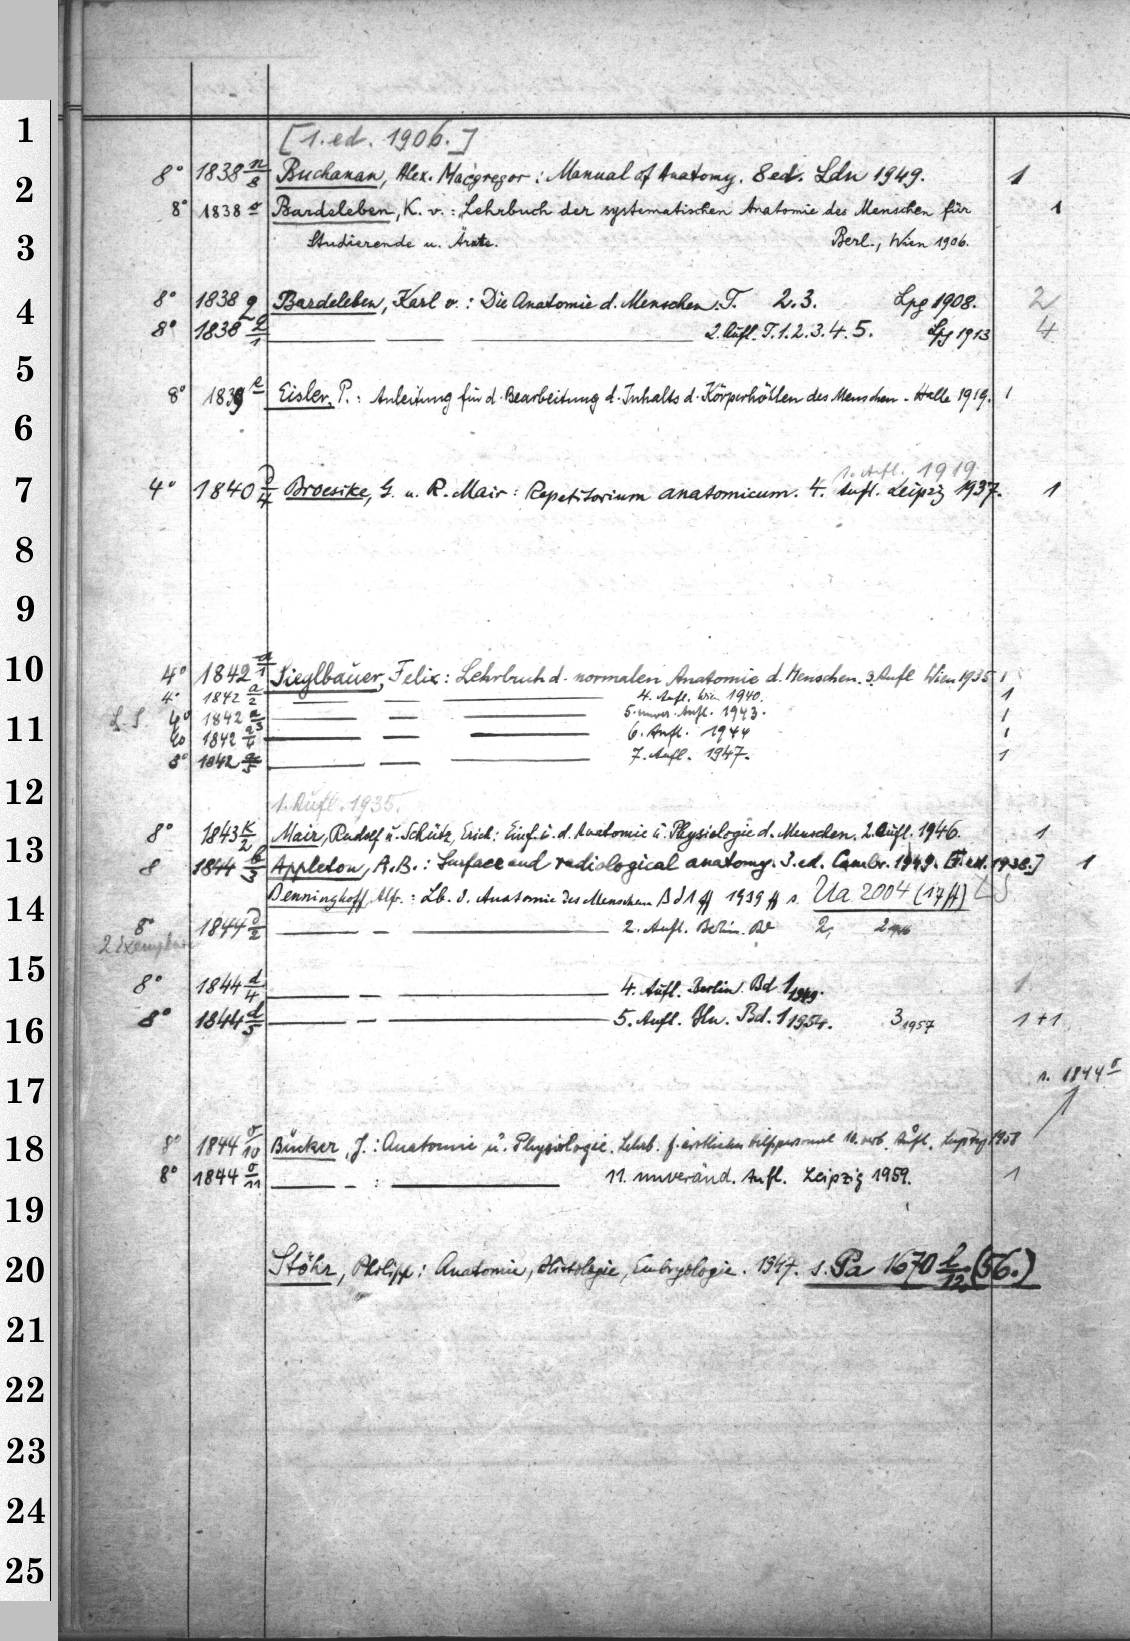 [1. ed. 1906.]
8° 1838 n/8 Buchanan, Alex. Macgregor: Manual of Anatomy. 8 ed. Ldn 1949. 1
8° 1838 o Bardeleben, K. v.: Lehrbuch der systematischen Anatomie des Menschen für 1
Studierende u. Ärzte. Berl., Wien 1906.
8° 1838 q Bardeleben, Karl v.: Die Anatomie d. Menschen. T. 2.3. Lpg 1908. 2
8° 1838 q/1 — — — 2. Aufl. T. 1.2.3.4.5. Lpg 1913 4
8° 1839 e Eisler, P.: Anleitung für d. Bearbeitung d. Inhalts d. Körperhöhlen des Menschen. Halle 1919. 1
1. Aufl. 1919
4° 1840 /4 Broesike, G. u. R. Mair: Repetitorium anatomicum. 4. Aufl. Leipzig 1937. 1
4° 1842 a/1 Sieglbauer, Felix: Lehrbuch d. normalen Anatomie d. Menschen. 3. Aufl Wien 1935 1
4° 1842 a/2 — — — 4. Aufl. Wien 1940. 1
L. S. 4° 1842 a/3 — — — 5. unver. Aufl. 1943. 1
4o 1842 a/4 — — — 6. Aufl. 1944 1
8° 1842 a/5 — — — 7. Aufl. 1947. 1
1. Aufl. 1935.
8° 1843 k/2 Mair, Rudolf u. Schütz, Erich: Einf. i. d. Anatomie u. Physiologie d. Menschen. 2. Aufl. 1946. 1
8 1844 b/3 Appleton, A.B.: Surface and radiological anatomy. 3. ed. Cambr. 1949. [1. ed. 1938.] 1
Benninghoff, Alf.: Lb. d. Anatomie des Menschen Bd 1 ff 1939 ff s. Ua 2004 (17 ff) LS
8° 1844 d/2 — — — 2. Aufl. Berlin. Bd 2,
2 Exemplare
8° 1844 d/4 — — — 4. Aufl. Berlin. Bd 1 1949. 1
8° 1844 d/5 — — — 5. Aufl. Bln. Bd. 1 1954. 3 1957 1 + 1
s. 1844 σ
8° 1844 σ/10 Bücker, J.: Anatomie u. Physiologie. Lehrb. f. ärztliches Hilfspersonal 10. verb. Aufl. Leipzig 1958
8° 1844 σ/11 — — : — 11. unveränd. Aufl. Leipzig 1959. 1
Stöhr, Philipp: Anatomie, Histologie, Embryologie. 1947. s. Pa 1670 l/12 (56.)
1
2
3
4
5
6
7
8
9
10
11
12
13
14
15
16
17
18
19
20
21
22
23
24
25